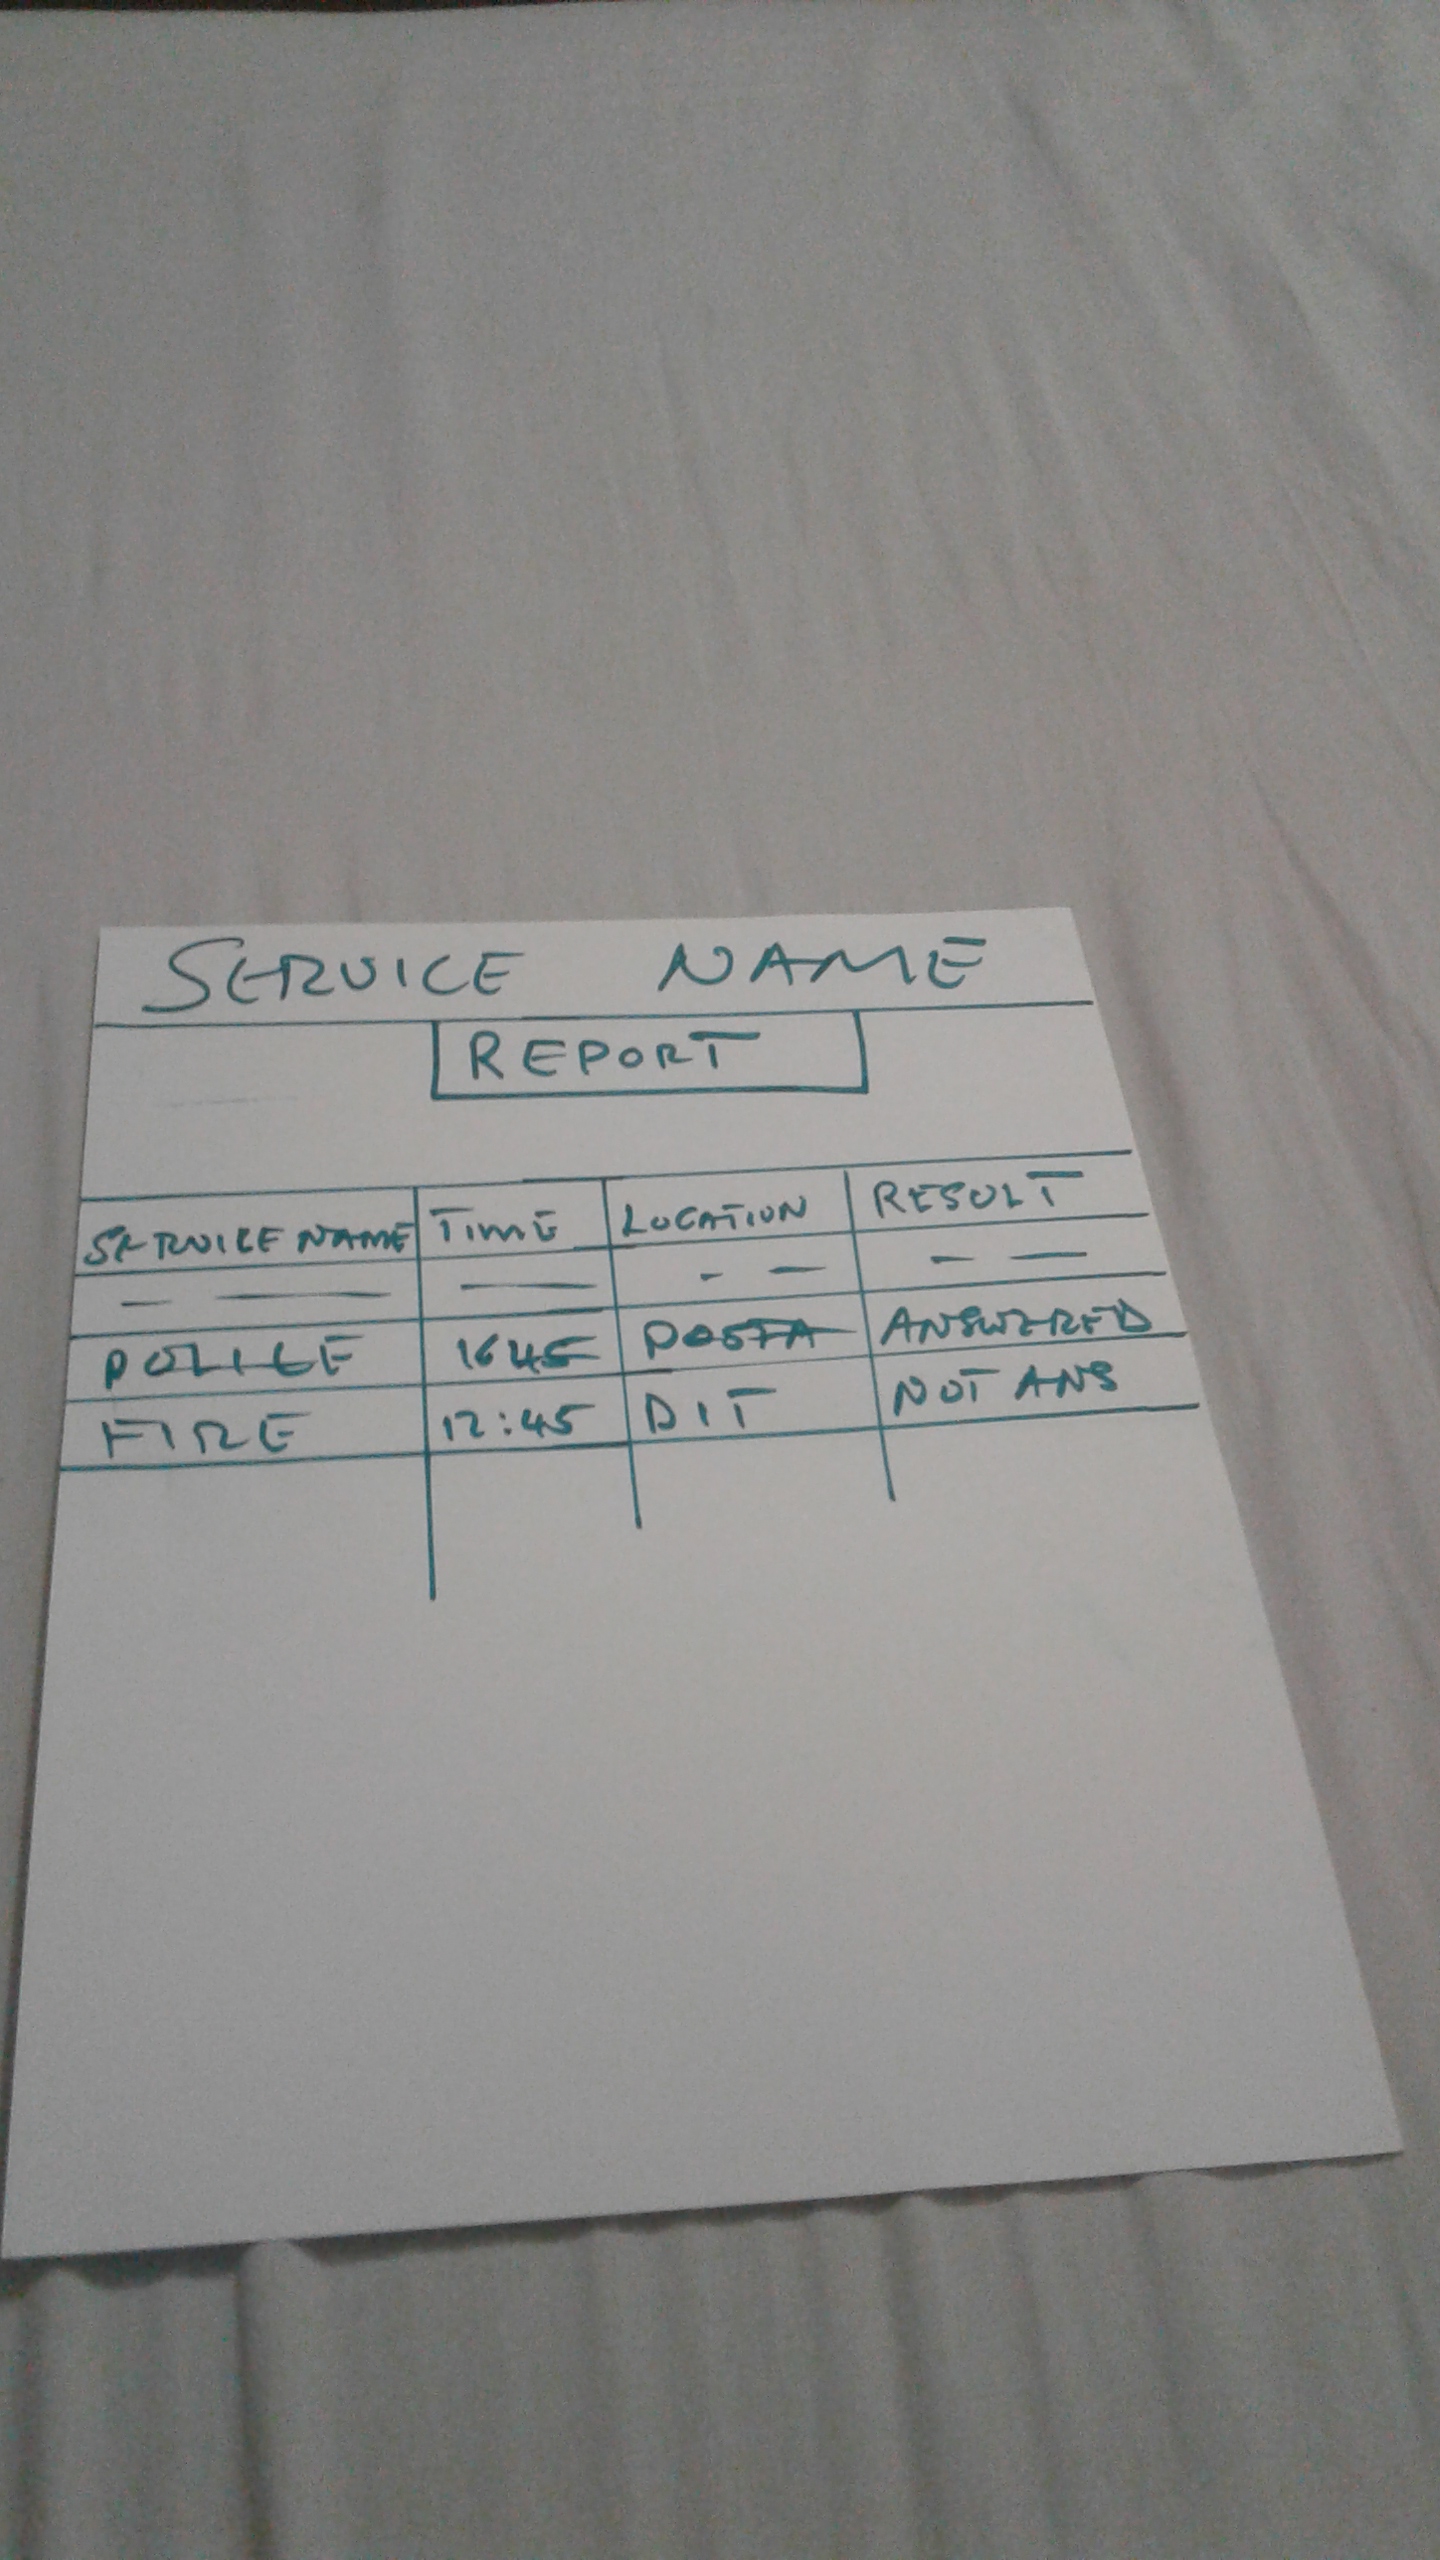 SERVICE NAME
REPORT
SERVICE NAME TIME LOCATION RESULT
— — — - — - —
POLICE 1645 POSTA ANSWERED
FIRE 12:45 DIT NOT ANS